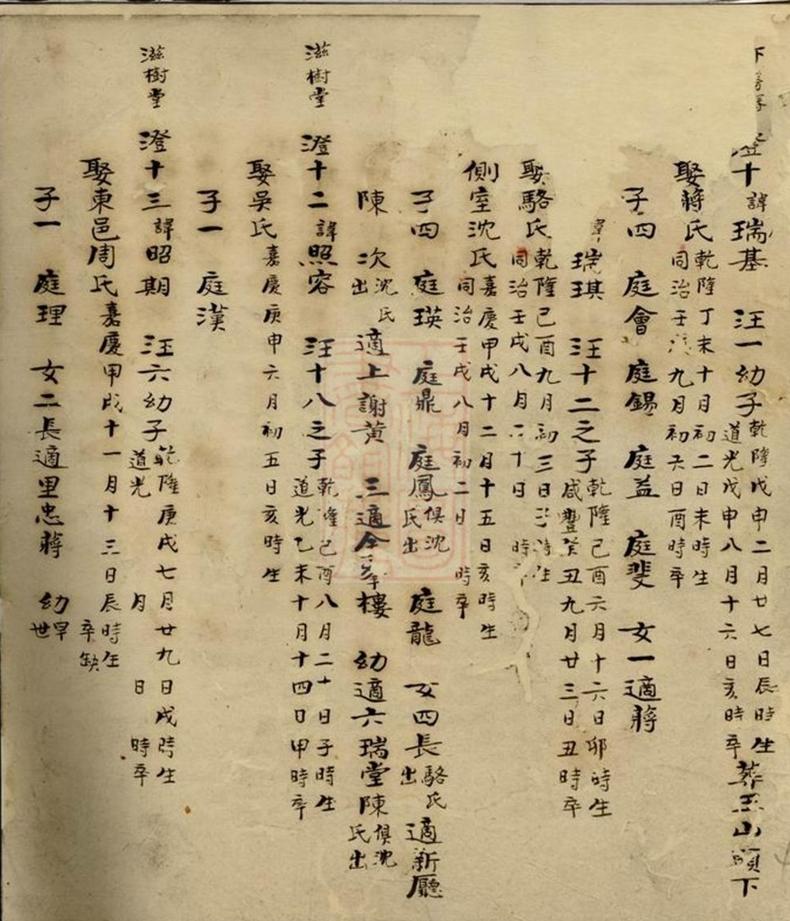 十諱瑞基 汪一幼子乾隆戊申二月廿七日辰時生道光戊申八月十六日亥時卒葬玉山頭下
娶蔣氏乾隆丁未十月初二日未時生同治壬 九月初六日酉時卒
子四 庭會 庭錫 庭益 庭斐 女一適蔣
瑞琪 汪十二之子乾隆己酉六月十六日卯時生咸豐癸丑九月廿三日丑時卒
娶駱氏乾隆己酉九月初三日 時生同治壬戌八月二十日 時
側室沈氏嘉慶甲戌十二月十五日亥時生同治壬戌八月初二日 時卒
子四 庭瑛 庭鼎 庭鳳俱沈氏出 庭龍 女四長駱氏出適新廳
陳 次沈氏出適上謝黃 三適 樓 幼適六瑞堂陳俱沈氏出
滋樹堂 澄十二諱照容 汪十八之子乾隆己酉八月二十日子時生道光乙未十月十四日甲時卒
娶吳氏嘉慶庚申六月初五日亥時生
子一 庭漢
滋樹堂 澄十三諱昭期 汪六幼子乾隆庚戌七月廿九日戌時生道光 月 日 時卒
娶東邑周氏嘉慶甲戌十一月十三日辰時生卒缺
子一 庭理 女二長適里忠蔣 幼早世